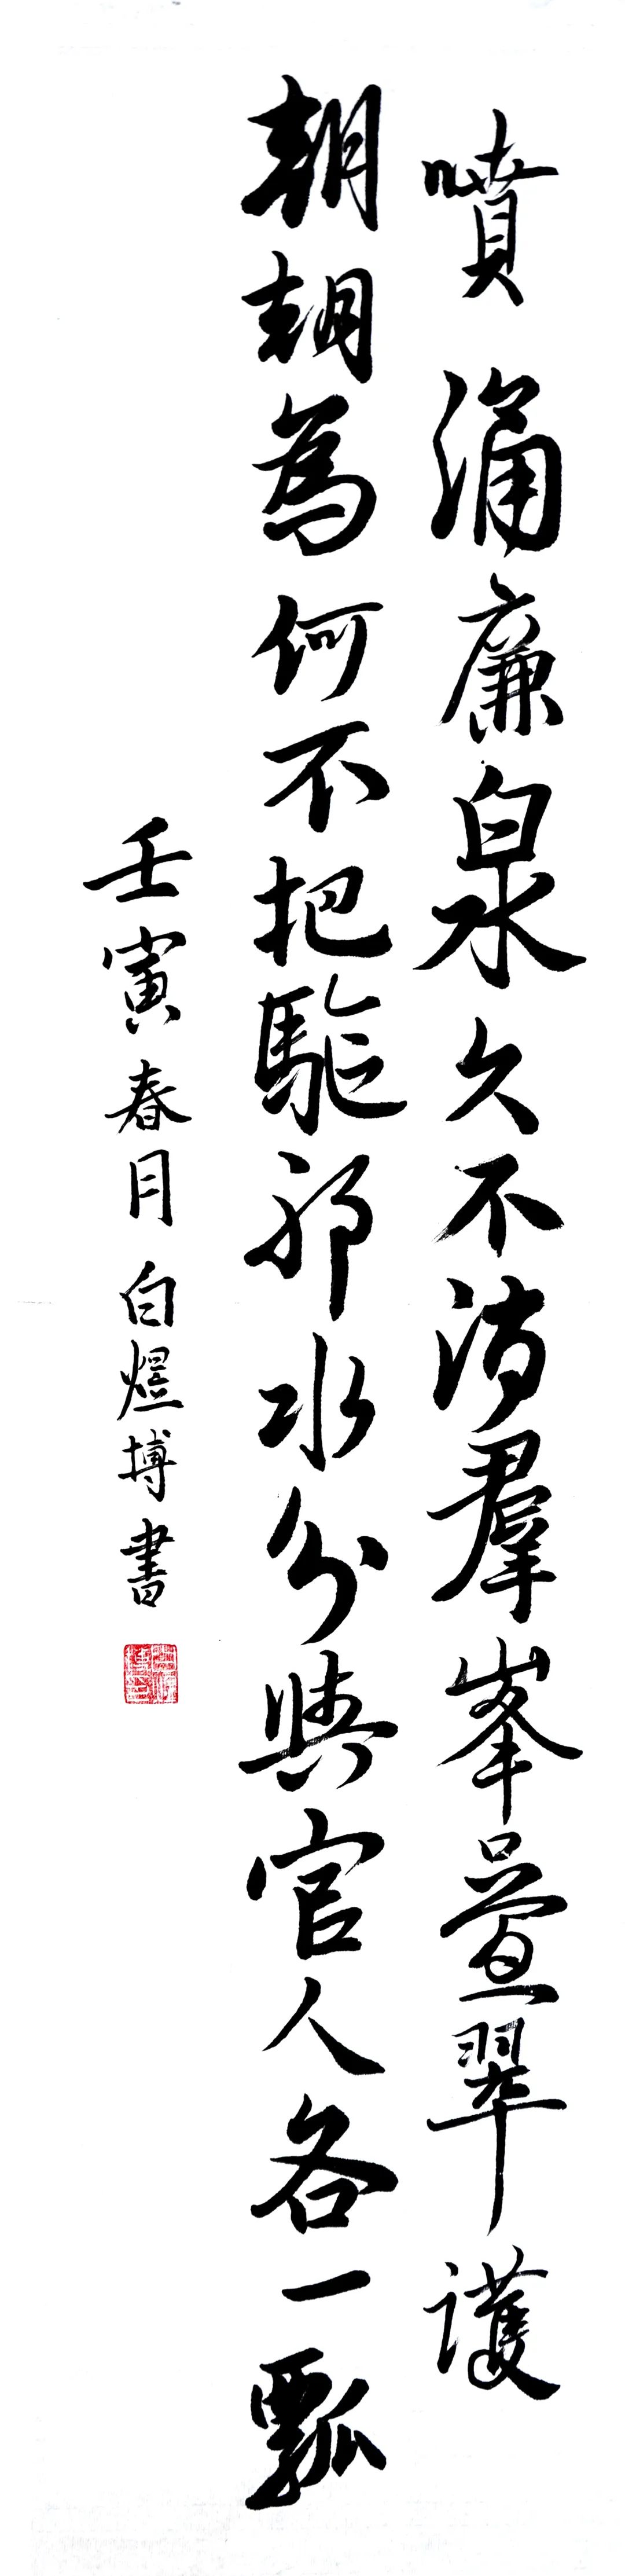 噴涌廉泉久不消羣峯疊翠護
朝朝為何不把驅邪水分與官人各一瓢
壬寅春月白煜博書